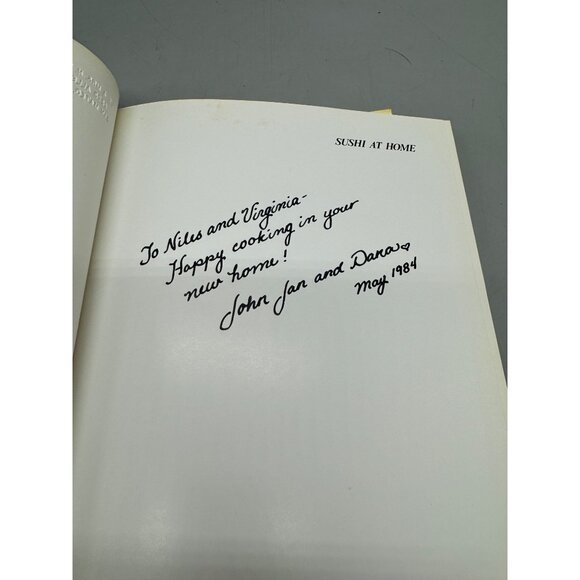 SUSHI AT HOME
To Niles and Virginia-
Happy cooking in your
new home!
John Jan and Dana♡
May 1984